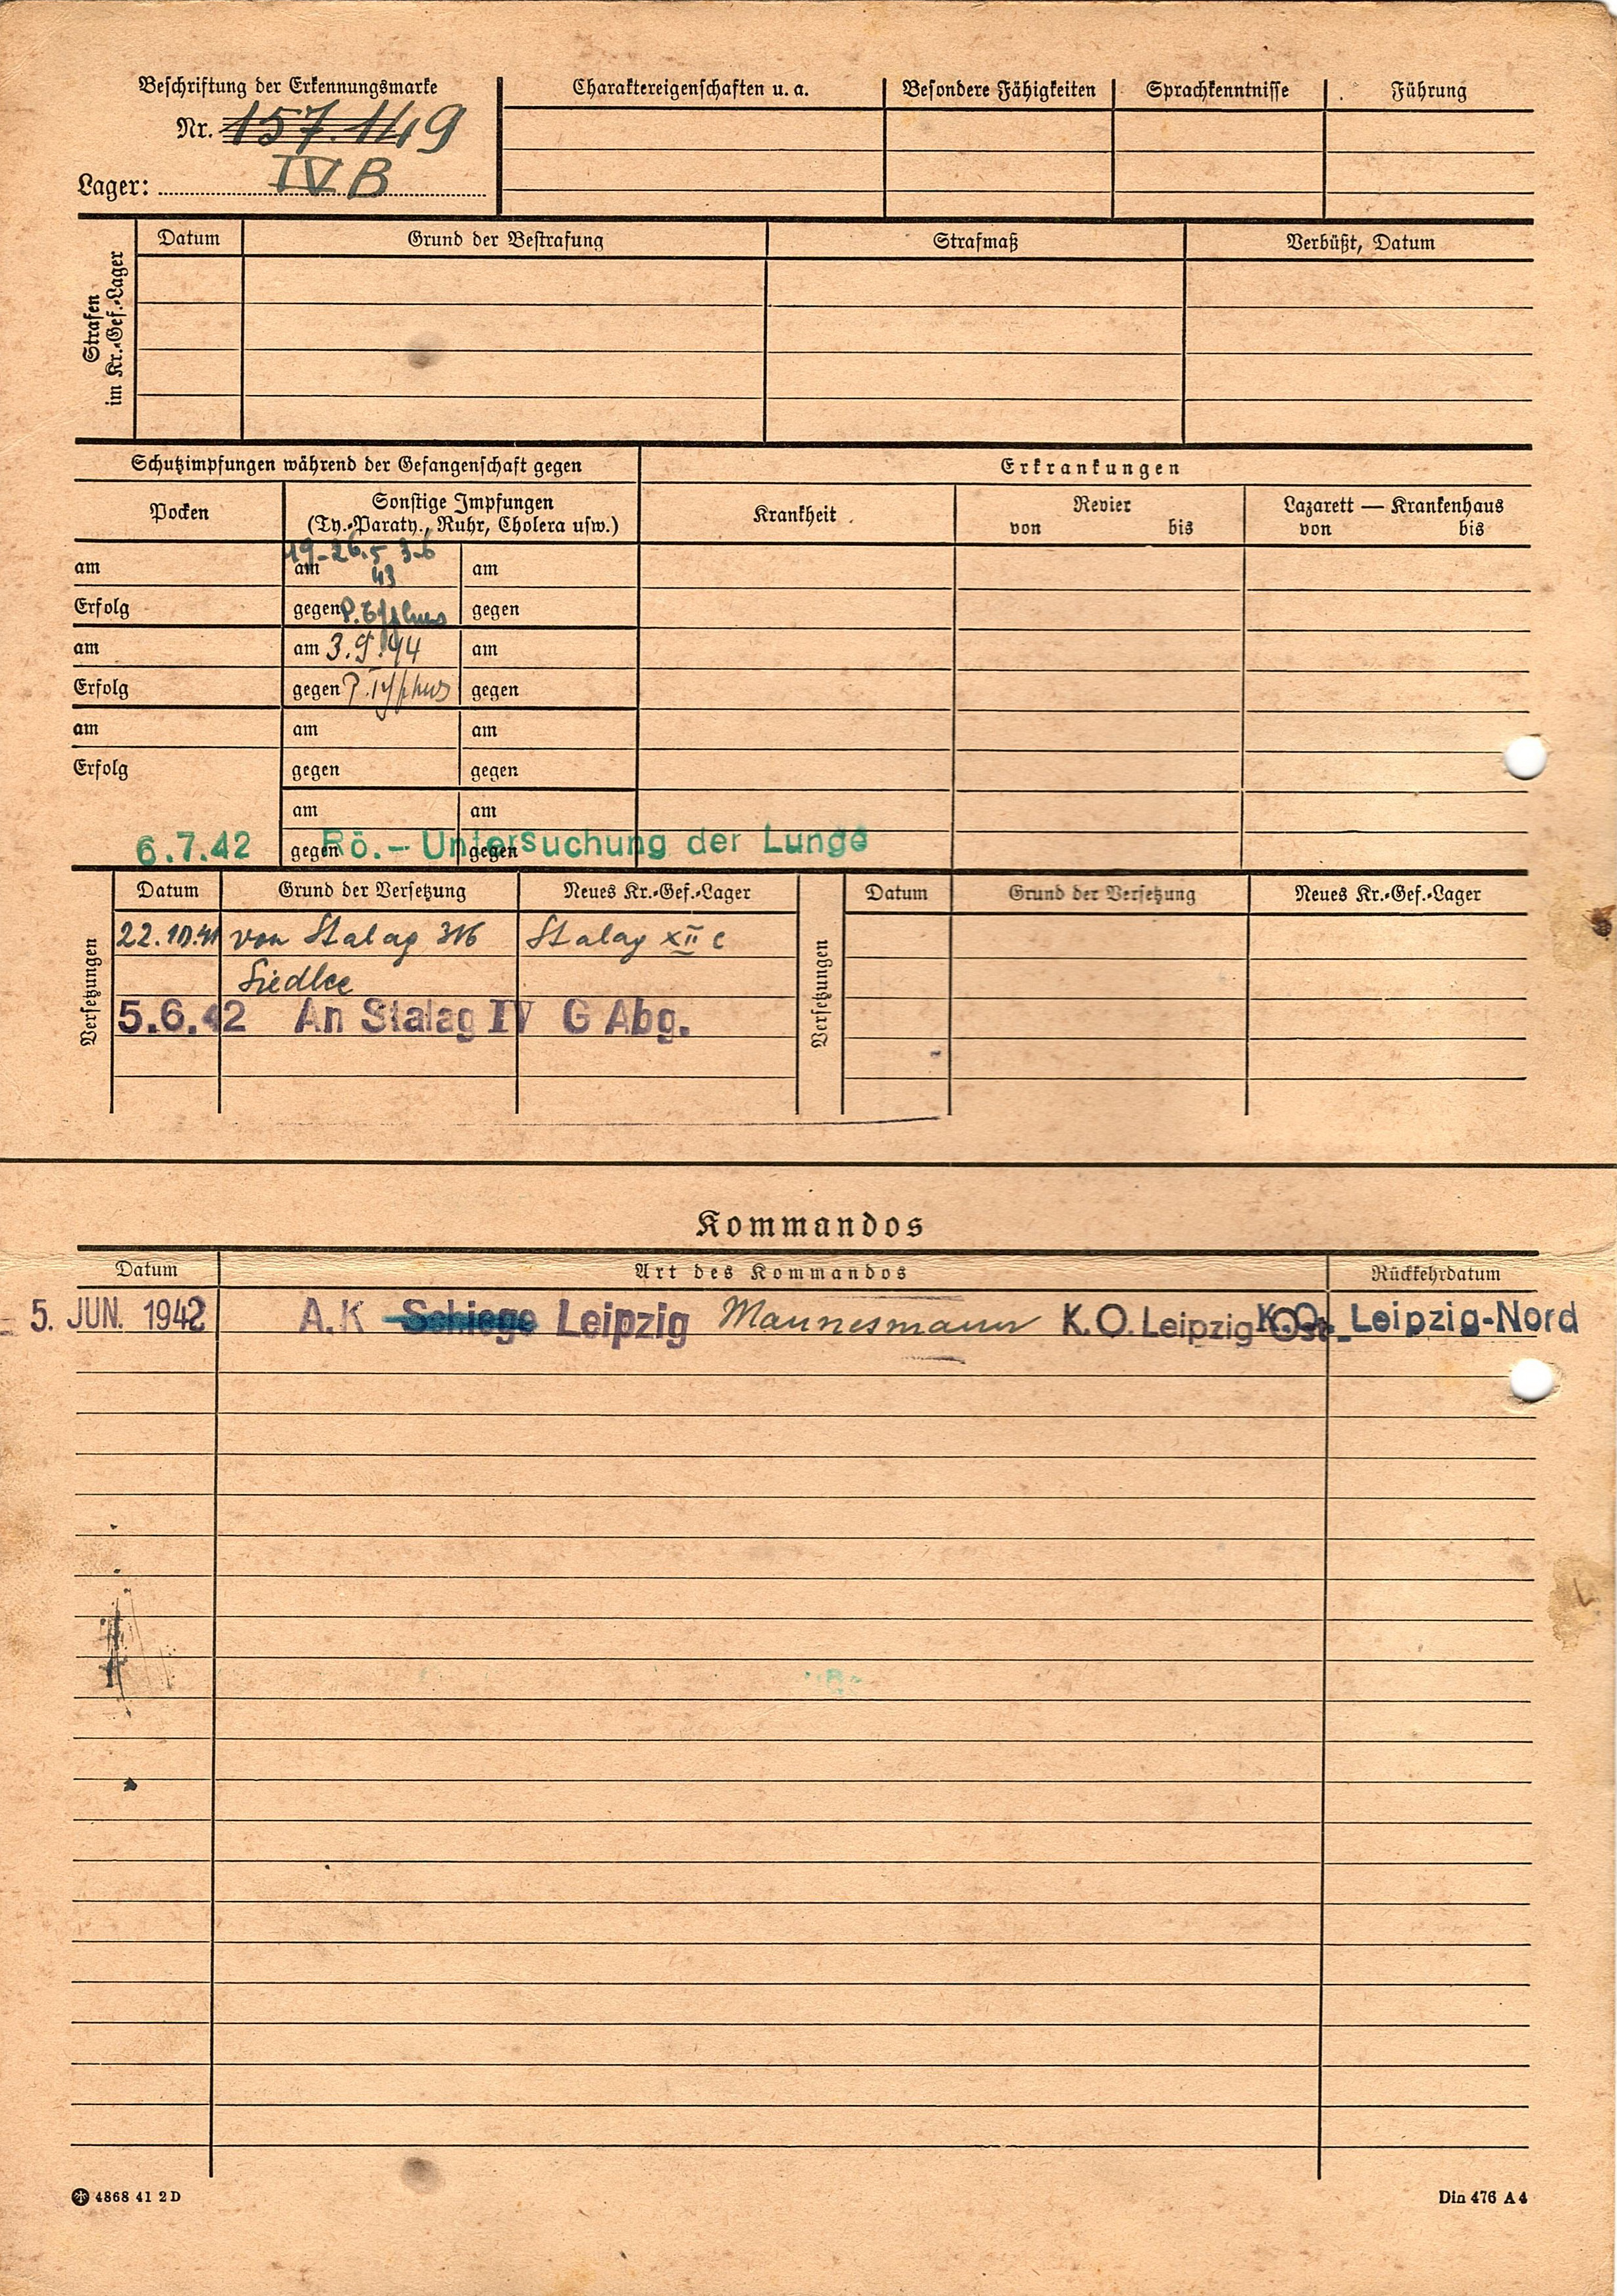 Beschriftung der Erkennungsmarke
Nr. 157.149
Lager: IV B
Charaktereigenschaften u. a. Besondere Fähigkeiten Sprachkenntnisse Führung
Strafen
im Kr.-Gef.-Lager
Datum Grund der Bestrafung Strafmaß Verbüßt, Datum
Schutzimpfungen während der Gefangenschaft gegen Erkrankungen
Pocken
Sonstige Impfungen
(Ty.-Paraty., Ruhr, Cholera usw.)
Krankheit
Revier
von bis
Lazarett — Krankenhaus
von bis
19-26.5 3-6
am am 43 am
Erfolg gegen P. Typhus gegen
am am 3.9.44 am
Erfolg gegen P. Typhus gegen
am am am
Erfolg gegen gegen
am am
gegen gegen
6.7.42 Rö.- Untersuchung der Lunge
Versetzungen
Datum Grund der Versetzung Neues Kr.-Gef.-Lager
22.10.41 von Stalag 316 Stalag XII C
Siedlce
5.6.42 An Stalag IV G Abg.
Versetzungen
Datum Grund der Versetzung Neues Kr.-Gef.-Lager
Kommandos
Datum Art des Kommandos Rückkehrdatum
5. JUN. 1942 A.K Schiege Leipzig Mannesmann K.O. Leipzig-Ost K.O. Leipzig-Nord
4868 41 2 D
Din 476 A 4